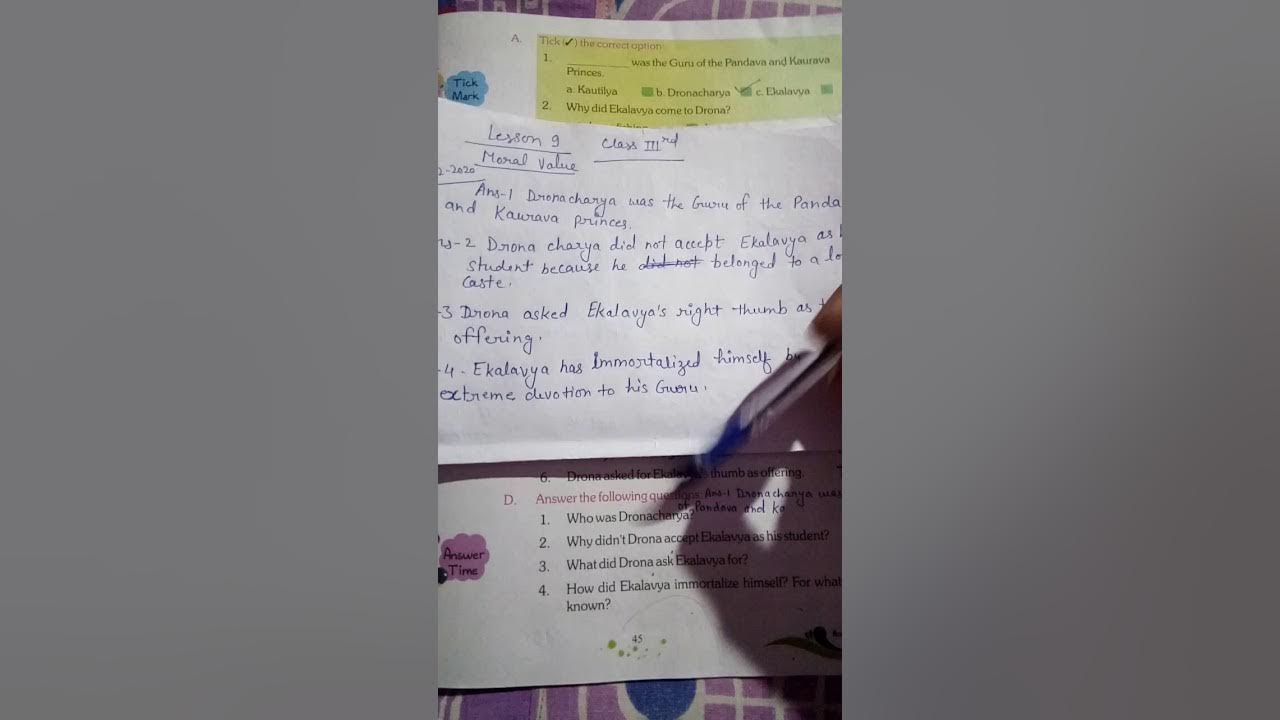 A. Tick (✓) the correct option:
1. ________ was the Guru of the Pandava and Kaurava
Princes.
a. Kautilya b. Dronacharya c. Ekalavya
Tick
Mark
2. Why did Ekalavya come to Drona?
Lesson 9 Class IIIrd
Moral Value
2-2020
Ans-1 Dronacharya was the Guru of the Panda
and Kaurava princes.
-2 Drona charya did not accept Ekalavya as
student because he did not belonged to a lo
caste.
-3 Drona asked Ekalavya's right thumb as
offering.
-4. Ekalavya has Immortalized himself
extreme devotion to his Guru.
6. Drona asked for thumb as offering.
D. Answer the following questions: Ans-1 Dronacharya was
of Pandava and ka
1. Who was Dronacharya?
2. Why didn't Drona accept Ekalavya as his student?
3. What did Drona ask Ekalavya for?
4. How did Ekalavya immortalize himself? For what
known?
Answer
Time
45